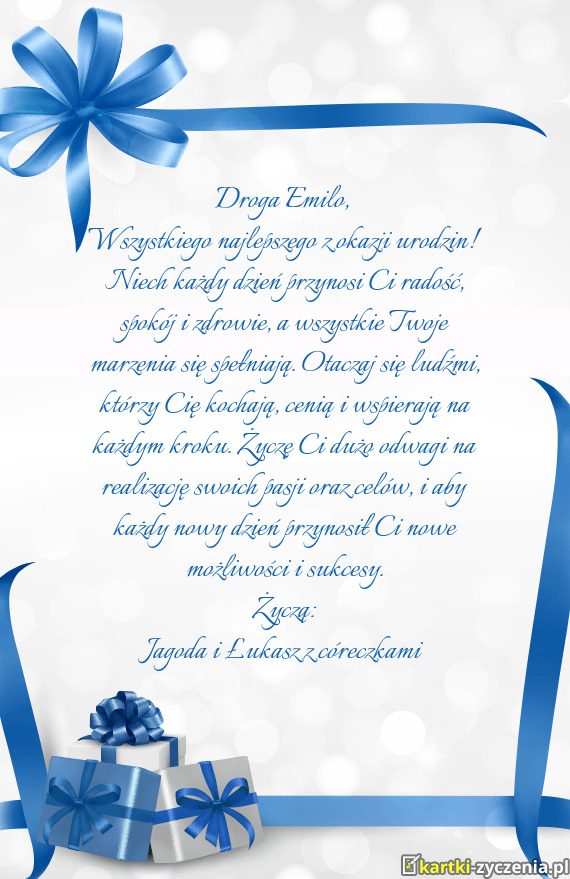 Droga Emilo,
Wszystkiego najlepszego z okazji urodzin!
Niech każdy dzień przynosi Ci radość,
spokój i zdrowie, a wszystkie Twoje
marzenia się spełniają. Otaczaj się ludźmi,
którzy Cię kochają, cenią i wspierają na
każdym kroku. Życzę Ci dużo odwagi na
realizację swoich pasji oraz celów, i aby
każdy nowy dzień przynosił Ci nowe
możliwości i sukcesy.
Życzą:
Jagoda i Łukasz z córeczkami
kartki-zyczenia.pl